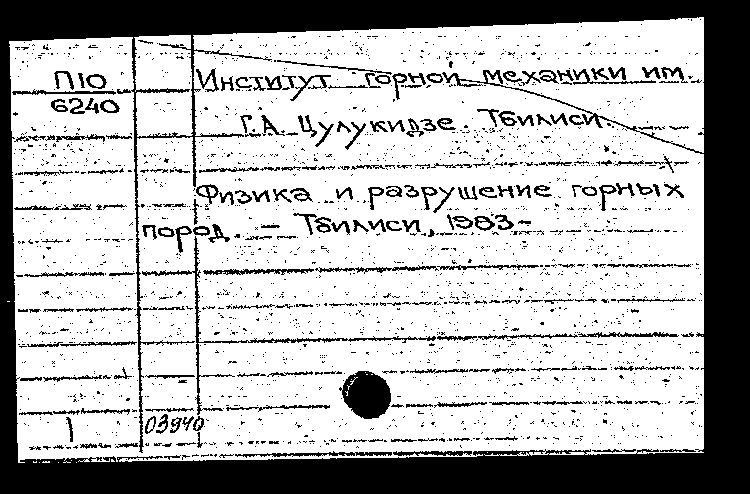 П10
6240
Институт горной механики им.
Г.А. Цулукидзе. Тбилиси.
Физика и разрушение горных
пород. — Тбилиси, 1983-
1
03940